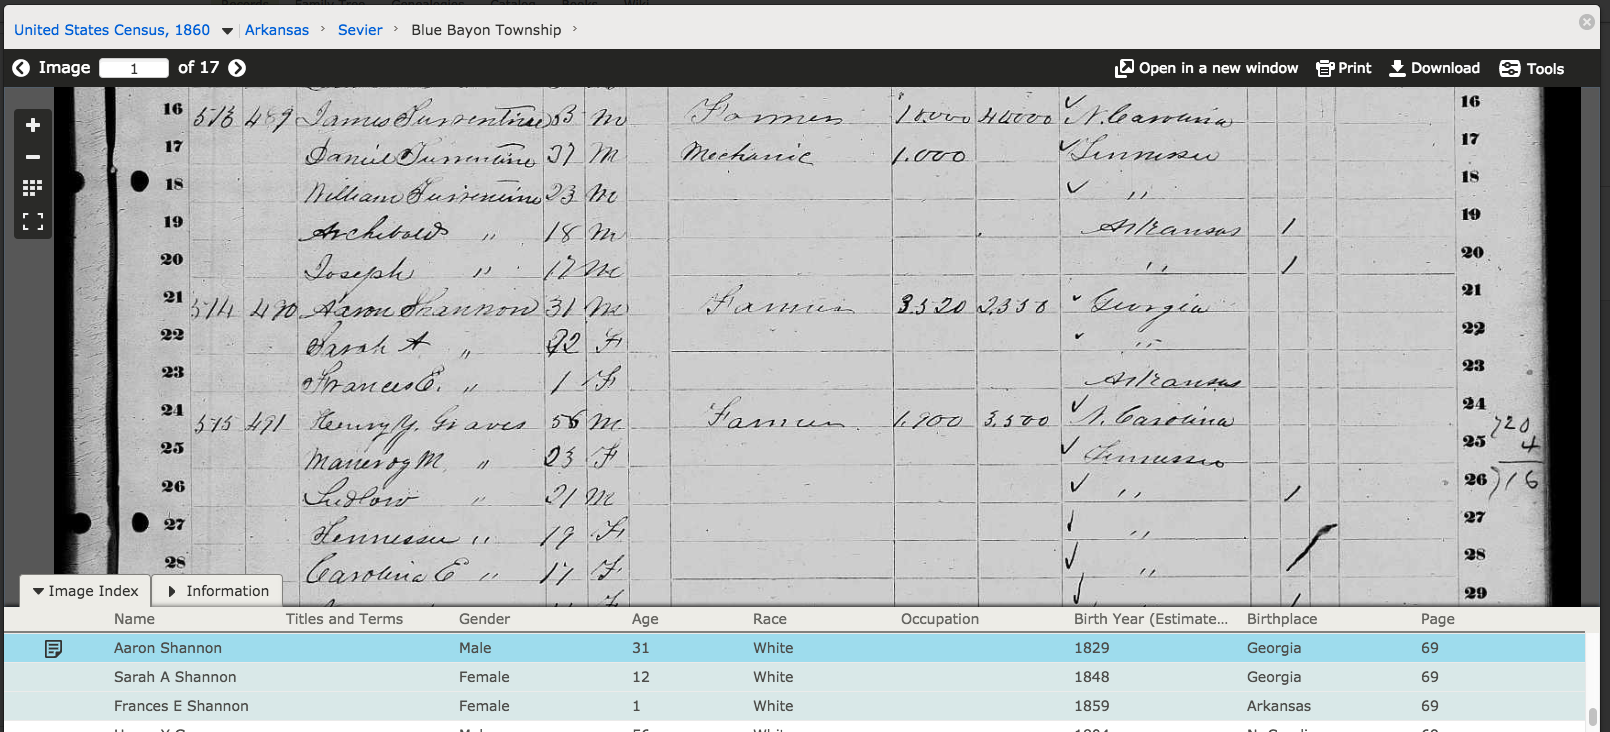 United States Census, 1860 Arkansas › Sevier › Blue Bayon Township ›
Image 1 of 17 Open in a new window Print Download Tools
16 513 489 James Turrentine 53 M Farmer 10.000 40000 N. Carolina 16
17 Daniel Turrentine 27 M Mechanic 1.000 Tennessee 17
18 William Turrentine 23 M " 18
19 Archibald " 18 M Arkansas 1 19
20 Joseph " 17 M " 1 20
21 514 490 Aaron Shannon 31 M Farmer 3.520 2.350 Georgia 21
22 Sarah A " F " 22
23 Frances E. " 1 F Arkansas 23
24 515 491 Henry Y. Graves 56 M Farmer 1.900 3.500 N. Carolina 24
720
25 M " 23 F Tennessee 25
4
26 Ludlow " 21 M " 1 26
716
27 Hennessee " 19 F " 27
28 Carolina E " 17 F " 28
29
Image Index Information
Name Titles and Terms Gender Age Race Occupation Birth Year (Estimate... Birthplace Page
Aaron Shannon Male 31 White 1829 Georgia 69
Sarah A Shannon Female 12 White 1848 Georgia 69
Frances E Shannon Female 1 White 1859 Arkansas 69